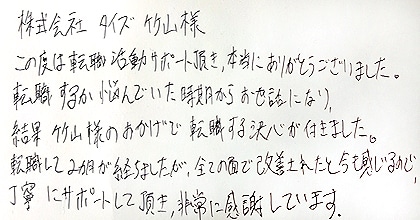 株式会社 タイズ 竹山様
この度は転職活動サポート頂き、本当にありがとうございました。
転職するか悩んでいた時期からお世話になり、
結果 竹山様のおかげで転職する決心が付きました。
転職して2カ月が経ちましたが、全ての面で改善されたと今も感じるので、
丁寧にサポートして頂き、非常に感謝しています。